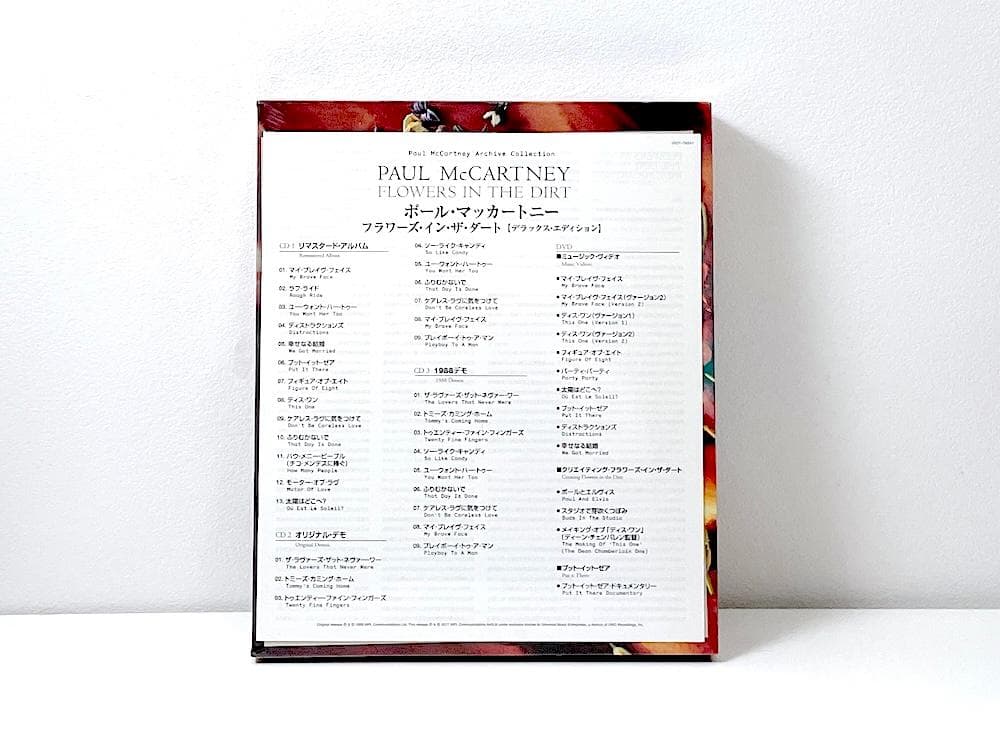 Paul McCartney Archive Collection
PAUL McCARTNEY
FLOWERS IN THE DIRT
ポール・マッカートニー
フラワーズ・イン・ザ・ダート【デラックス・エディション】
CD 1 リマスタード・アルバム
Remastered Album
01. マイ・ブレイヴ・フェイス
My Brave Face
02. ラフ・ライド
Rough Ride
03. ユー・ウォント・ハー・トゥー
You Want Her Too
04. ディストラクションズ
Distractions
05. 幸せなる結婚
We Got Married
06. プット・イット・ゼア
Put It There
07. フィギュア・オブ・エイト
Figure Of Eight
08. ディス・ワン
This One
09. ケアレス・ラヴに気をつけて
Don't Be Careless Love
10. ふりむかないで
That Day Is Done
11. ハウ・メニー・ピープル
(チコ・メンデスに捧ぐ)
How Many People
12. モーター・オブ・ラヴ
Motor Of Love
13. 太陽はどこへ?
Où Est Le Soleil?
CD 2 オリジナル・デモ
Original Demos
01. ザ・ラヴァーズ・ザット・ネヴァー・ワー
The Lovers That Never Were
02. トミーズ・カミング・ホーム
Tommy's Coming Home
03. トゥエンティー・ファイン・フィンガーズ
Twenty Fine Fingers
04. ソー・ライク・キャンディ
So Like Candy
05. ユー・ウォント・ハー・トゥー
You Want Her Too
06. ふりむかないで
That Day Is Done
07. ケアレス・ラヴに気をつけて
Don't Be Careless Love
08. マイ・ブレイヴ・フェイス
My Brave Face
09. プレイボーイ・トゥ・ア・マン
Playboy To A Man
CD 3 1988デモ
1988 Demos
01. ザ・ラヴァーズ・ザット・ネヴァー・ワー
The Lovers That Never Were
02. トミーズ・カミング・ホーム
Tommy's Coming Home
03. トゥエンティー・ファイン・フィンガーズ
Twenty Fine Fingers
04. ソー・ライク・キャンディ
So Like Candy
05. ユー・ウォント・ハー・トゥー
You Want Her Too
06. ふりむかないで
That Day Is Done
07. ケアレス・ラヴに気をつけて
Don't Be Careless Love
08. マイ・ブレイヴ・フェイス
My Brave Face
09. プレイボーイ・トゥ・ア・マン
Playboy To A Man
DVD
■ミュージック・ヴィデオ
Music Videos
● マイ・ブレイヴ・フェイス
My Brave Face
● マイ・ブレイヴ・フェイス(ヴァージョン2)
My Brave Face (Version 2)
● ディス・ワン(ヴァージョン1)
This One (Version 1)
● ディス・ワン(ヴァージョン2)
This One (Version 2)
● フィギュア・オブ・エイト
Figure Of Eight
● パーティ・パーティ
Party Party
● 太陽はどこへ?
Où Est Le Soleil?
● プット・イット・ゼア
Put It There
● ディストラクションズ
Distractions
● 幸せなる結婚
We Got Married
■クリエイティング・フラワーズ・イン・ザ・ダート
Creating Flowers in the Dirt
● ポールとエルヴィス
Paul And Elvis
● スタジオで芽吹くつぼみ
Buds In The Studio
● メイキング・オブ「ディス・ワン」
(ディーン・チェンバレン監督)
The Making Of 'This One'
(The Dean Chamberlain One)
■プット・イット・ゼア
Put It There
● プット・イット・ゼア・ドキュメンタリー
Put It There Documentary